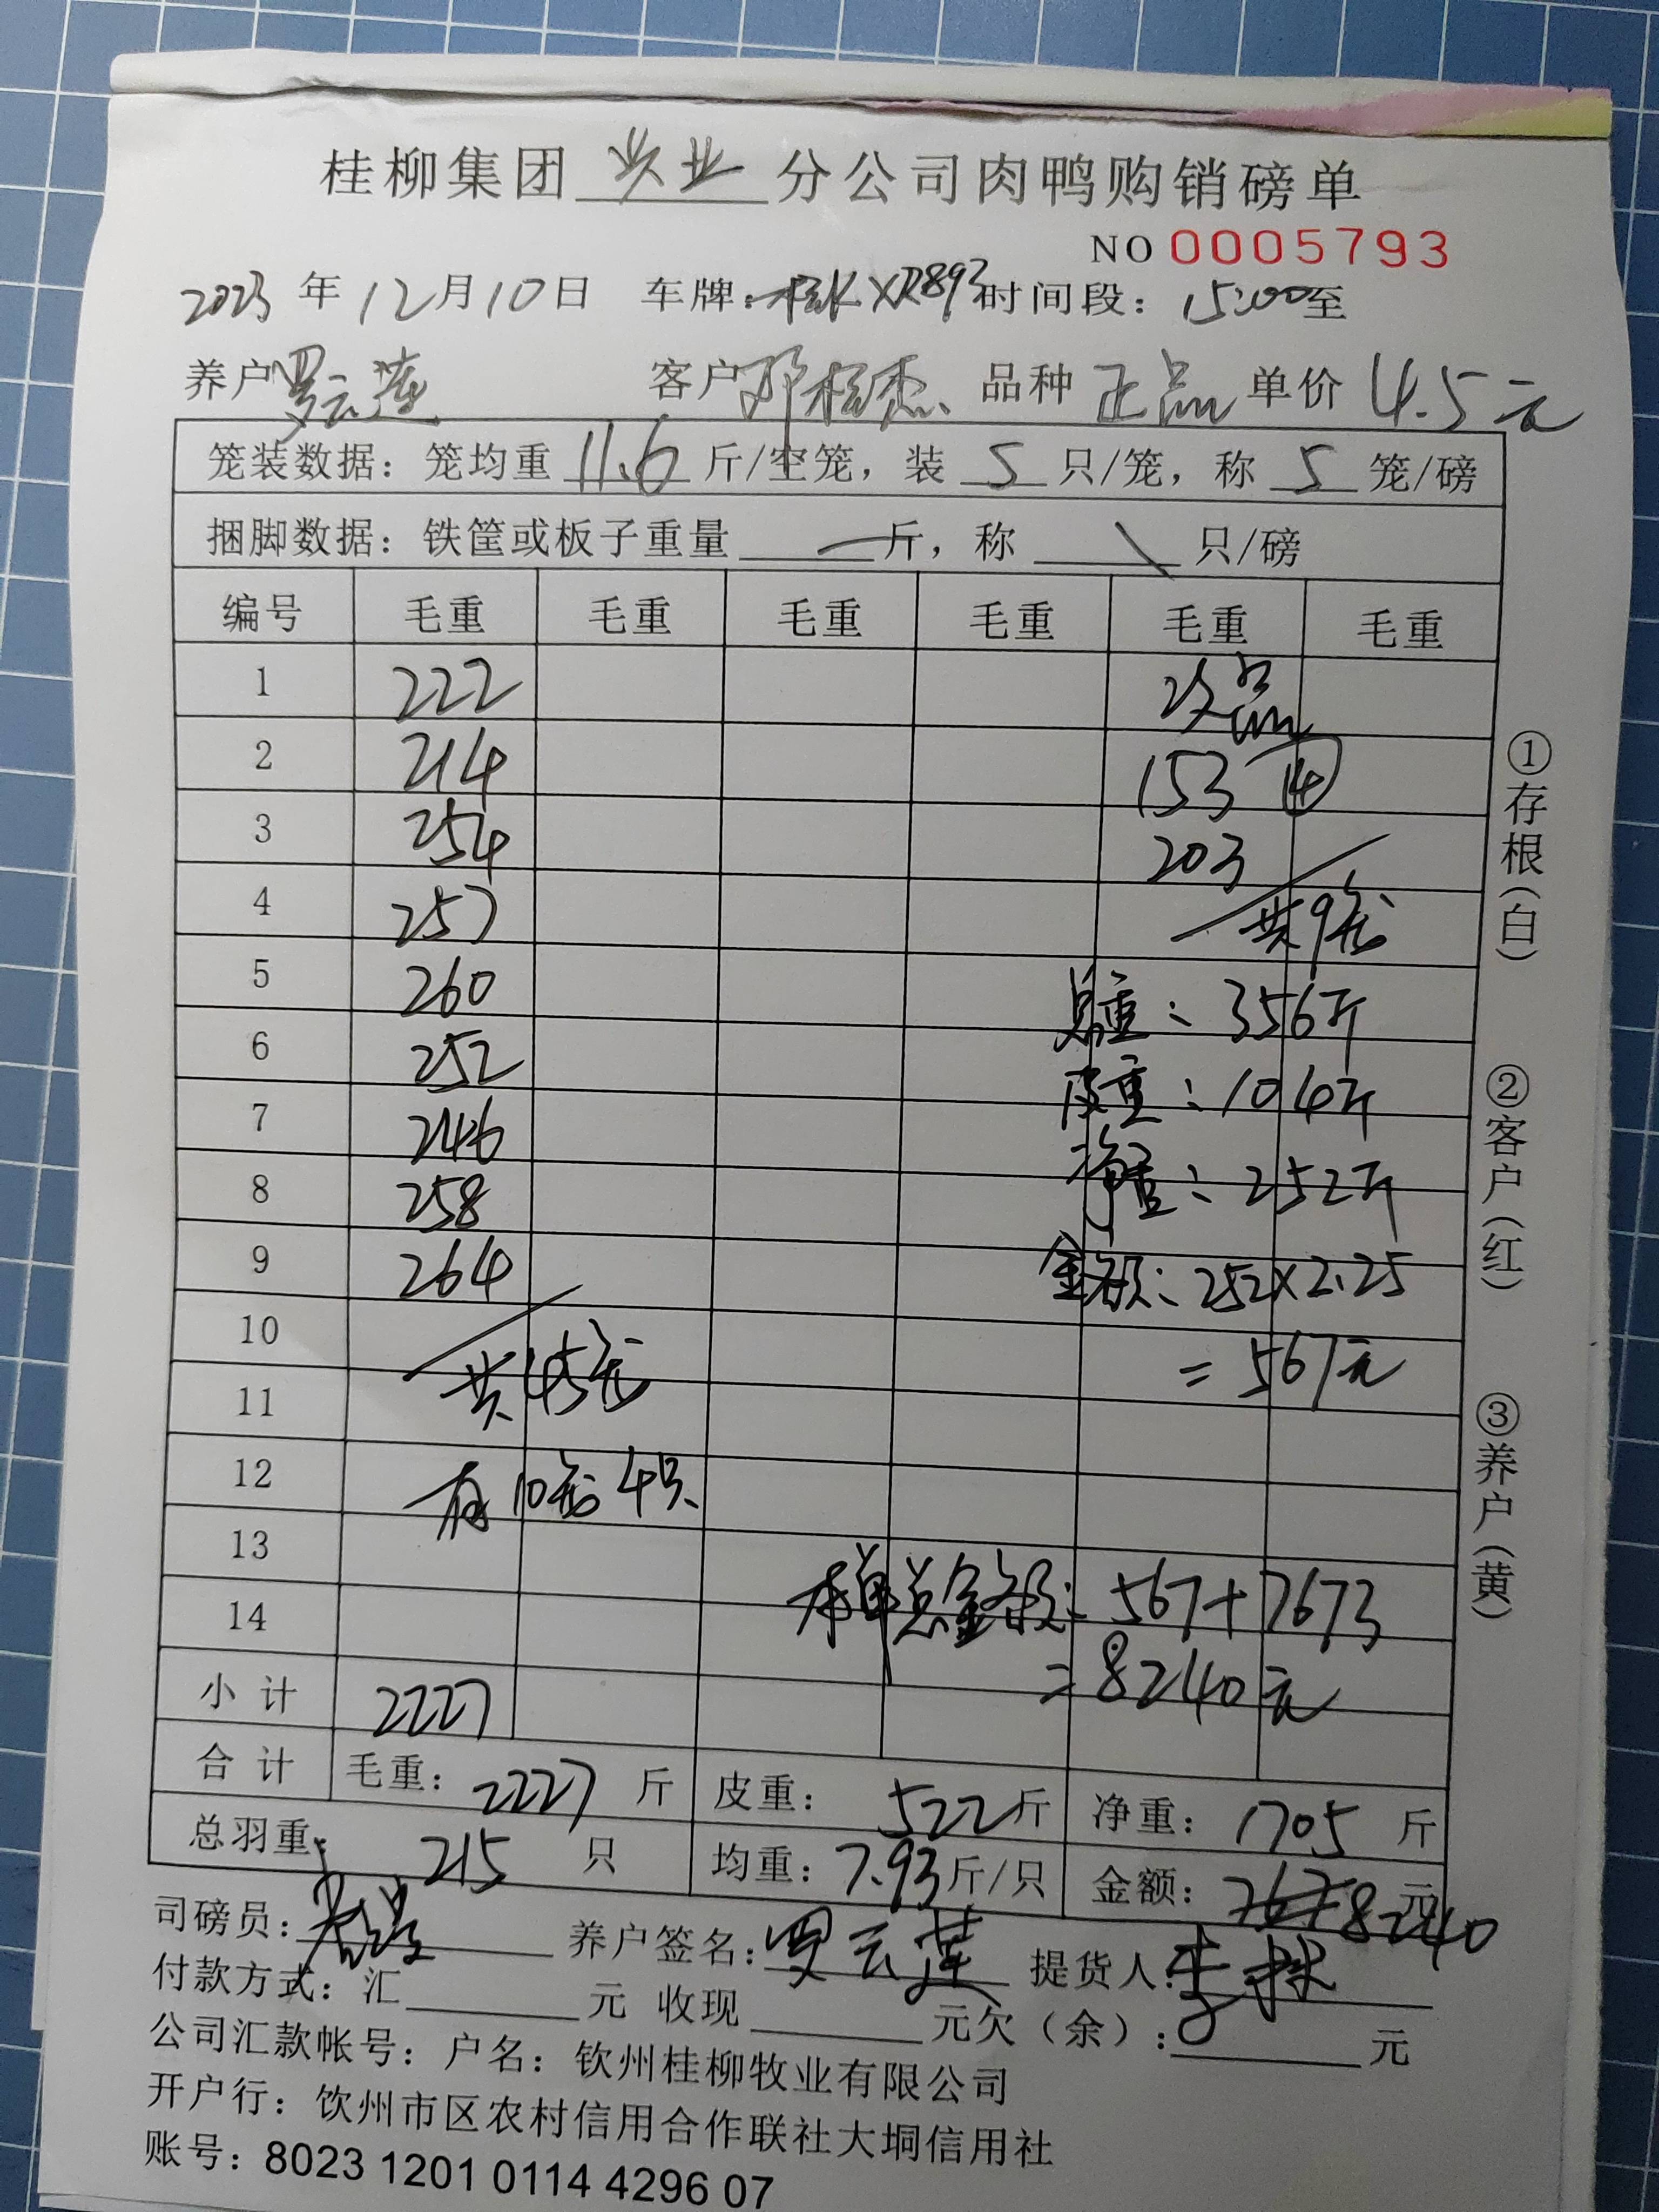 桂柳集团 兴业 分公司肉鸭购销磅单
NO 0005793
2023 年 12 月 10 日 车牌：桂KXR893 时间段：15:00 至
养户 罗云莲 客户 邓桂杰 品种 正品 单价 4.5元
笼装数据：笼均重 11.6 斤/空笼，装 5 只/笼，称 5 笼/磅
捆脚数据：铁筐或板子重量 斤，称 只/磅
编号 毛重 毛重 毛重 毛重 毛重 毛重
1 222 次品
2 214 153 ④
3 254 203
4 257 共9笼
5 260 总重：356斤
6 252 皮重：104斤
7 246 净重：252斤
8 258
9 264 金额：252×2.25
10 =567元
11 共45笼
12 有10笼4只
13
14 本单总金额：567+7673
=8240元
小 计 2227
合 计 毛重：2227 斤 皮重：522 斤 净重：1705 斤
总羽重： 215 只 均重：7.93 斤/只 金额：8240 元
司磅员： 养户签名：罗云莲 提货人：李林
付款方式：汇 元 收现 元欠（余）： 元
公司汇款帐号：户名：钦州桂柳牧业有限公司
开户行：钦州市区农村信用合作联社大垌信用社
账号：8023 1201 0114 4296 07
①存根（白）
②客户（红）
③养户（黄）